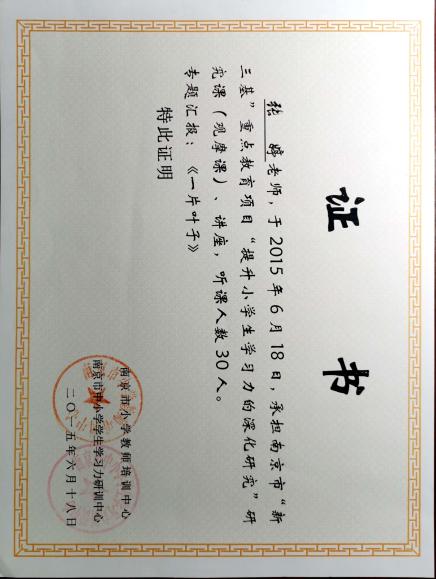 证书
张婷老师，于2015年6月18日，承担南京市“新
三基”重点教育项目“提升小学生学习力的深化研究”研
究课（观摩课）、讲座，听课人数30人。
专题汇报：《一片叶子》
特此证明
南京市小学教师培训中心
南京市中小学学生学习力研训中心
二〇一五年六月十八日